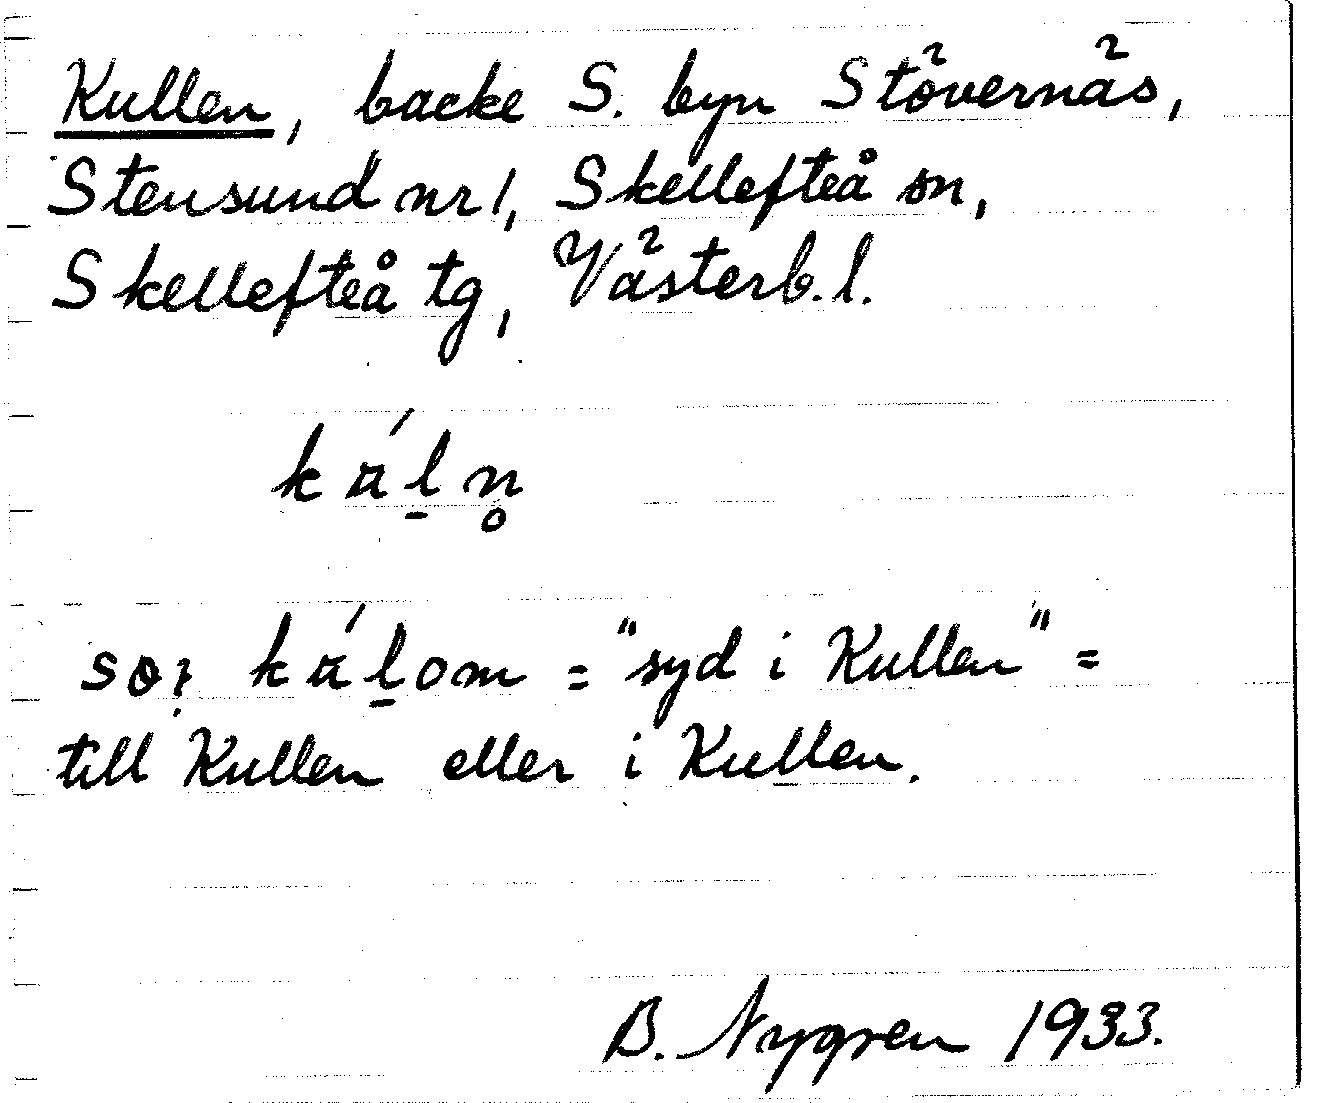 Kullen, backe S. byn Stövernäs,
Stensund nr 1, Skellefteå sn,
Skellefteå tg, Västerb. l.
= "syd i Kullen" =
till Kullen eller i Kullen.
B. Nygren 1933.